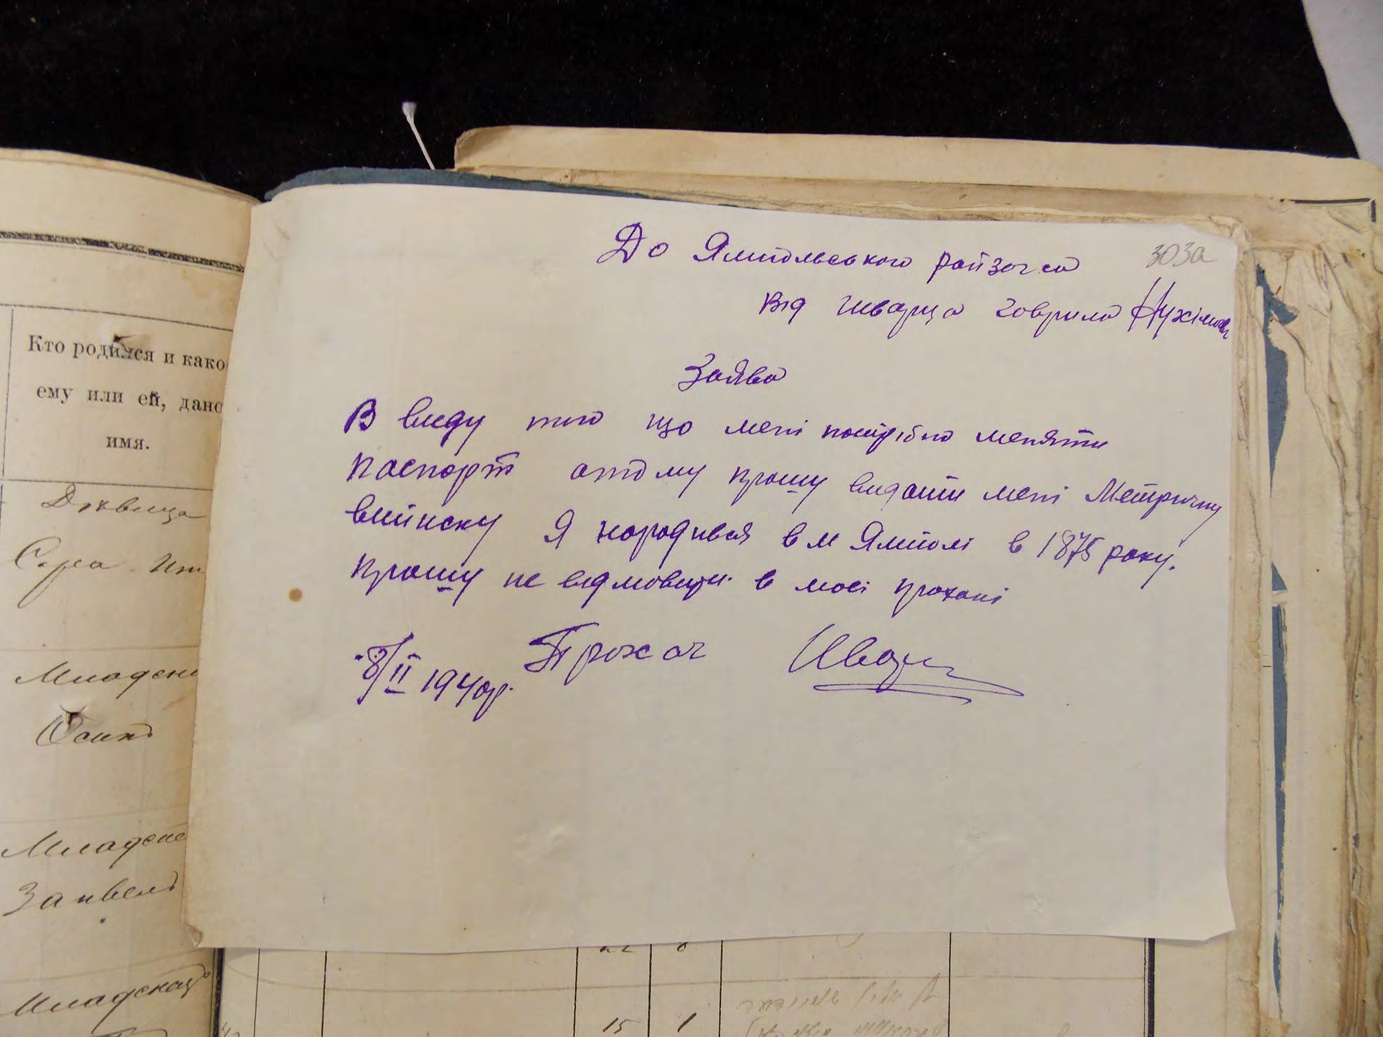 Кто родился и како
ему или ей, дано
имя.
Дѣвица
Сура
Младен
Осипъ
Младене
Младенец
До Ямпольського райзагса
303а
Від Шварца Гаврила Нухімов
Заява
В виду того що мені потрібно меняти
паспорт атому прошу видати мені Метричну
виписку Я народився в м Ямполі в 1875 року.
Прошу не відмовити в моєі прохані
8/II 1940р. Прохач Шварц
15 1